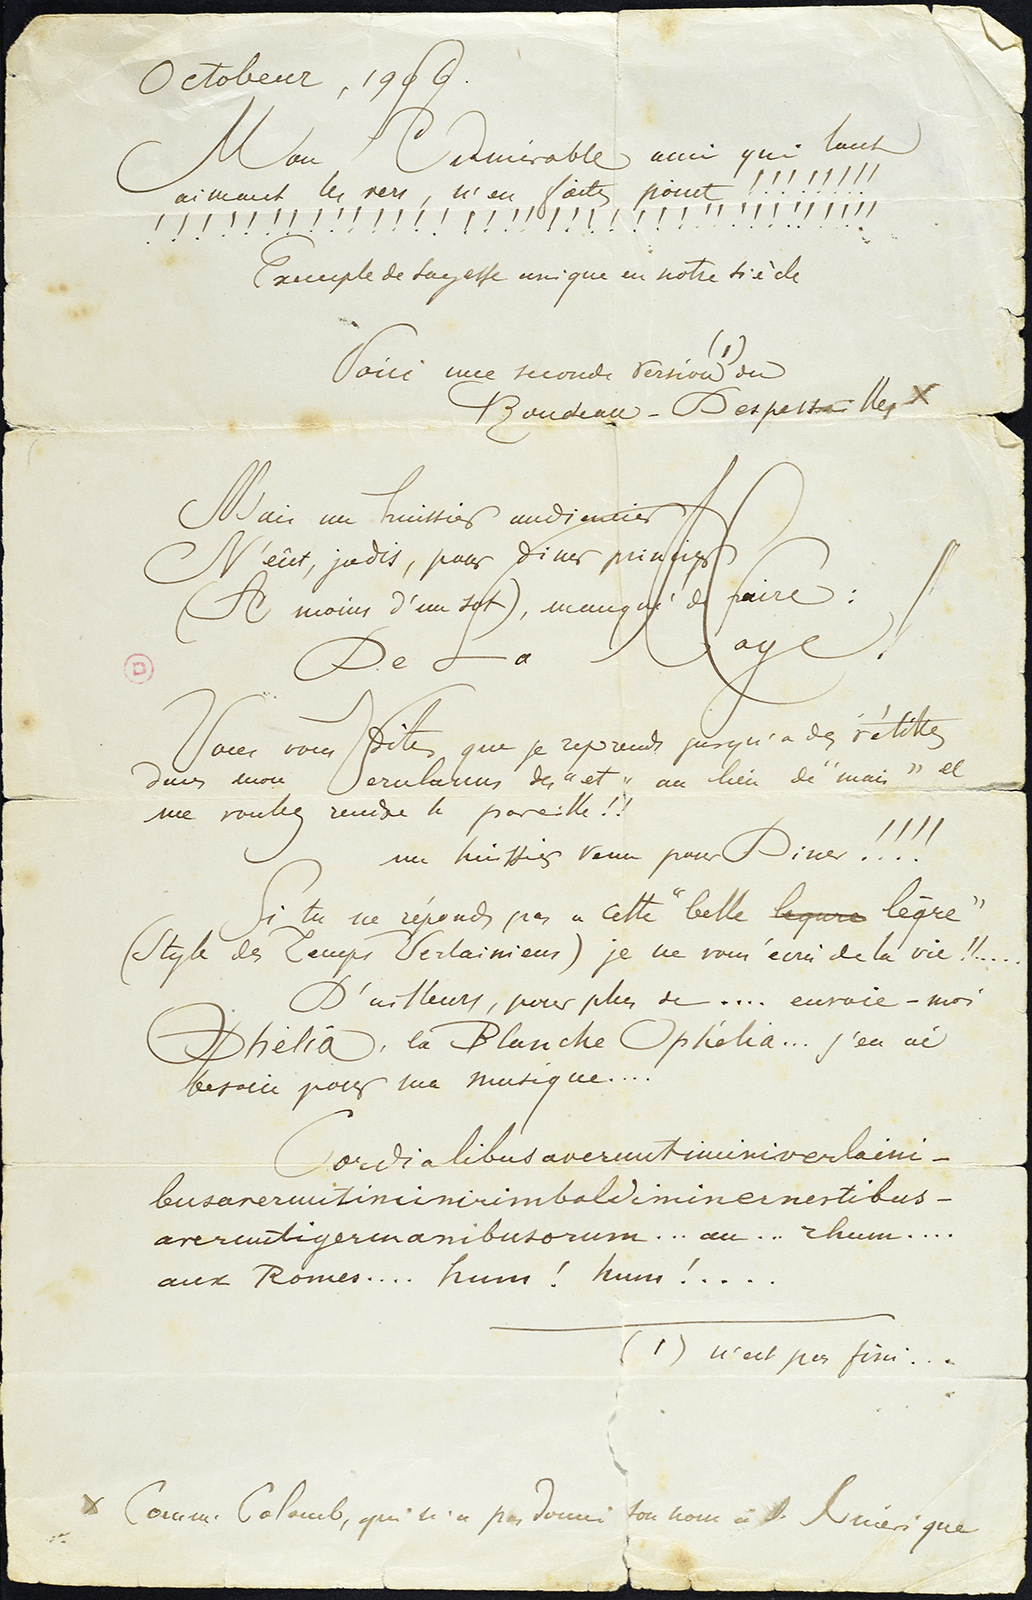 Octobeur, 1999.
Mon Admirable ami qui tant
aimant les vers, n'en faites point !!!!!!!!!
!!!!!!!!!!!!!!!!!!!!!!!!!!!!!!!!!!!
Exemple de sagesse unique en notre siècle
Voici une seconde version (1) du
Rondeau - Despassailles x
Mais un huissier audiencier
N'eût, jadis, pour dîner princier
(A moins d'un sot), manqué de faire :
De La Copie !
Vous vous dites que je reprends jusqu'à des
dans mon des "et" au lieu de "mais" et
me voulez rendre la pareille !!
un huissier venu pour Diner !!!!
Si tu ne réponds pas à cette "belle legure lêgre"
(Style des Temps Verlainiens) je ne vous écris de la vie !!.....
D'ailleurs, pour plus de .... envoie-moi
Ophélia, la Blanche Ophélia... j'en ai
besoin pour ma musique....
Cordialibusaveruntiminiverlaini-
busaveruntiminirimbaldiminernestibus-
averuntigermanibusorum... au .. rhum....
aux Romes.... hum ! hum !....
(1) n'est pas fini...
x Comme Colomb, qui n'a pas donné son nom à l'Amérique